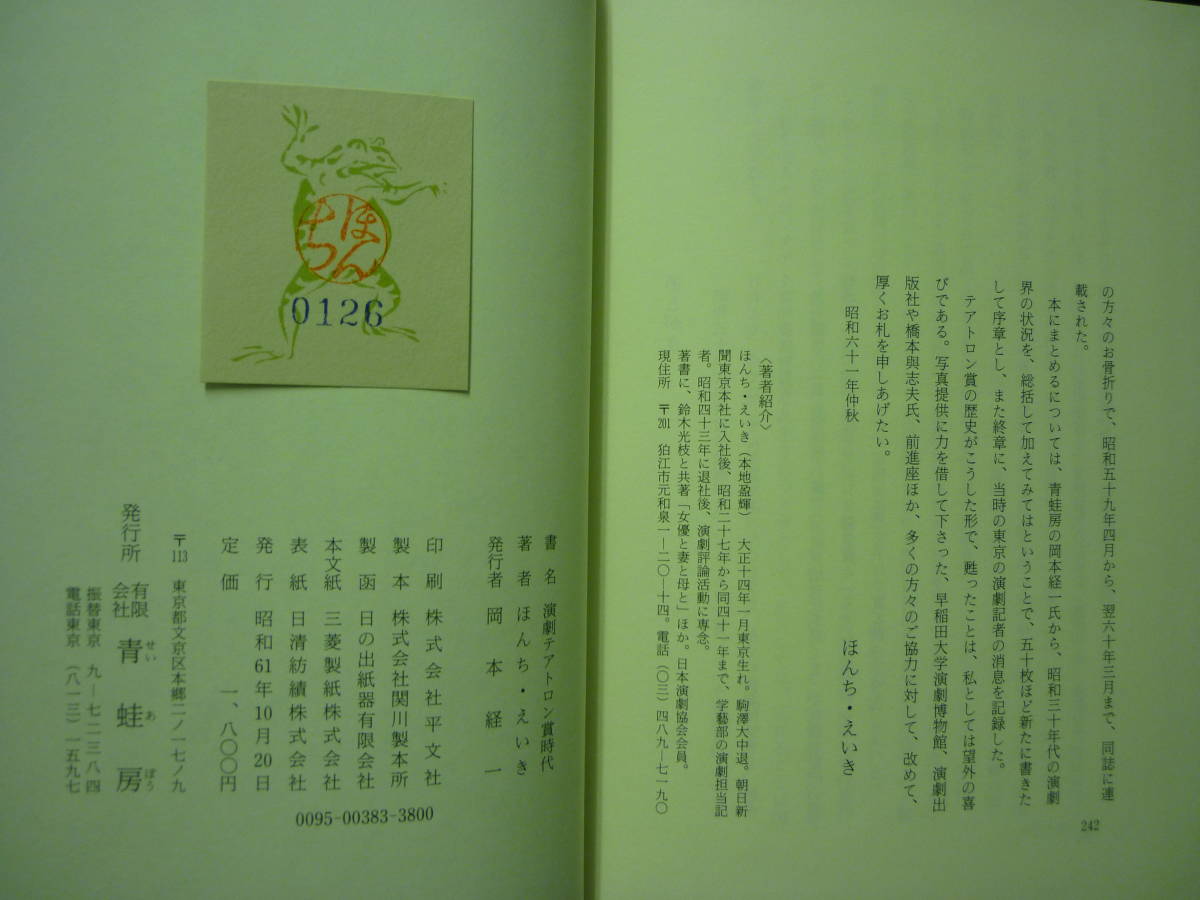 の方々のお骨折りで、昭和五十九年四月から、翌六十年三月まで、同誌に連
載された。
本にまとめるについては、青蛙房の岡本経一氏から、昭和三十年代の演劇
界の状況を、総括して加えてみてはということで、五十枚ほど新たに書きた
して序章とし、また終章に、当時の東京の演劇記者の消息を記録した。
テアトロン賞の歴史がこうした形で、甦ったことは、私としては望外の喜
びである。写真提供に力を借して下さった、早稲田大学演劇博物館、演劇出
版社や橋本與志夫氏、前進座ほか、多くの方々のご協力に対して、改めて、
厚くお札を申しあげたい。
昭和六十一年仲秋
ほんち・えいき
〈著者紹介〉
ほんち・えいき（本地盈輝）　大正十四年一月東京生れ。駒澤大中退。朝日新
聞東京本社に入社後、昭和二十七年から同四十一年まで、学藝部の演劇担当記
者。昭和四十三年に退社後、演劇評論活動に専念。
著書に、鈴木光枝と共著「女優と妻と母と」ほか。日本演劇協会会員。
現住所　〒201　狛江市元和泉一―二〇―十四。電話（〇三）四八九―七一九〇
242
ほんち
0126
書名　演劇テアトロン賞時代
著者　ほんち・えいき
発行者　岡本経一
印刷　株式会社平文社
製本　株式会社関川製本所
製函　日の出紙器有限会社
本文紙　三菱製紙株式会社
表紙　日清紡績株式会社
発行　昭和61年10月20日
定価　一、八〇〇円
〒113　東京都文京区本郷二ノ一七ノ九
発行所　有限会社　青蛙房
せいあぼう
振替東京　九―七二三八四
電話東京　（八一三）一五九七
0095-00383-3800